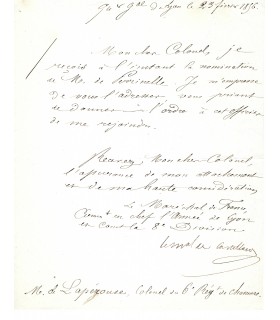 Gal de Lyon le 23 février 1856
Mon cher Colonel, je
reçois à l'instant la nomination
de Mr. de Perrinelle. Je m'empresse
de vous l'adresser en vous priant
de donner l'ordre à cet officier
de me rejoindre.
Recevez, Mon cher Colonel
l'assurance de mon attachement
et de ma haute considération
Le Maréchal de France
Commt en chef l'Armée de Lyon
et Commt la 8e Division
Castellane
Mr. de Lapérouse, Colonel du 6e Régt de